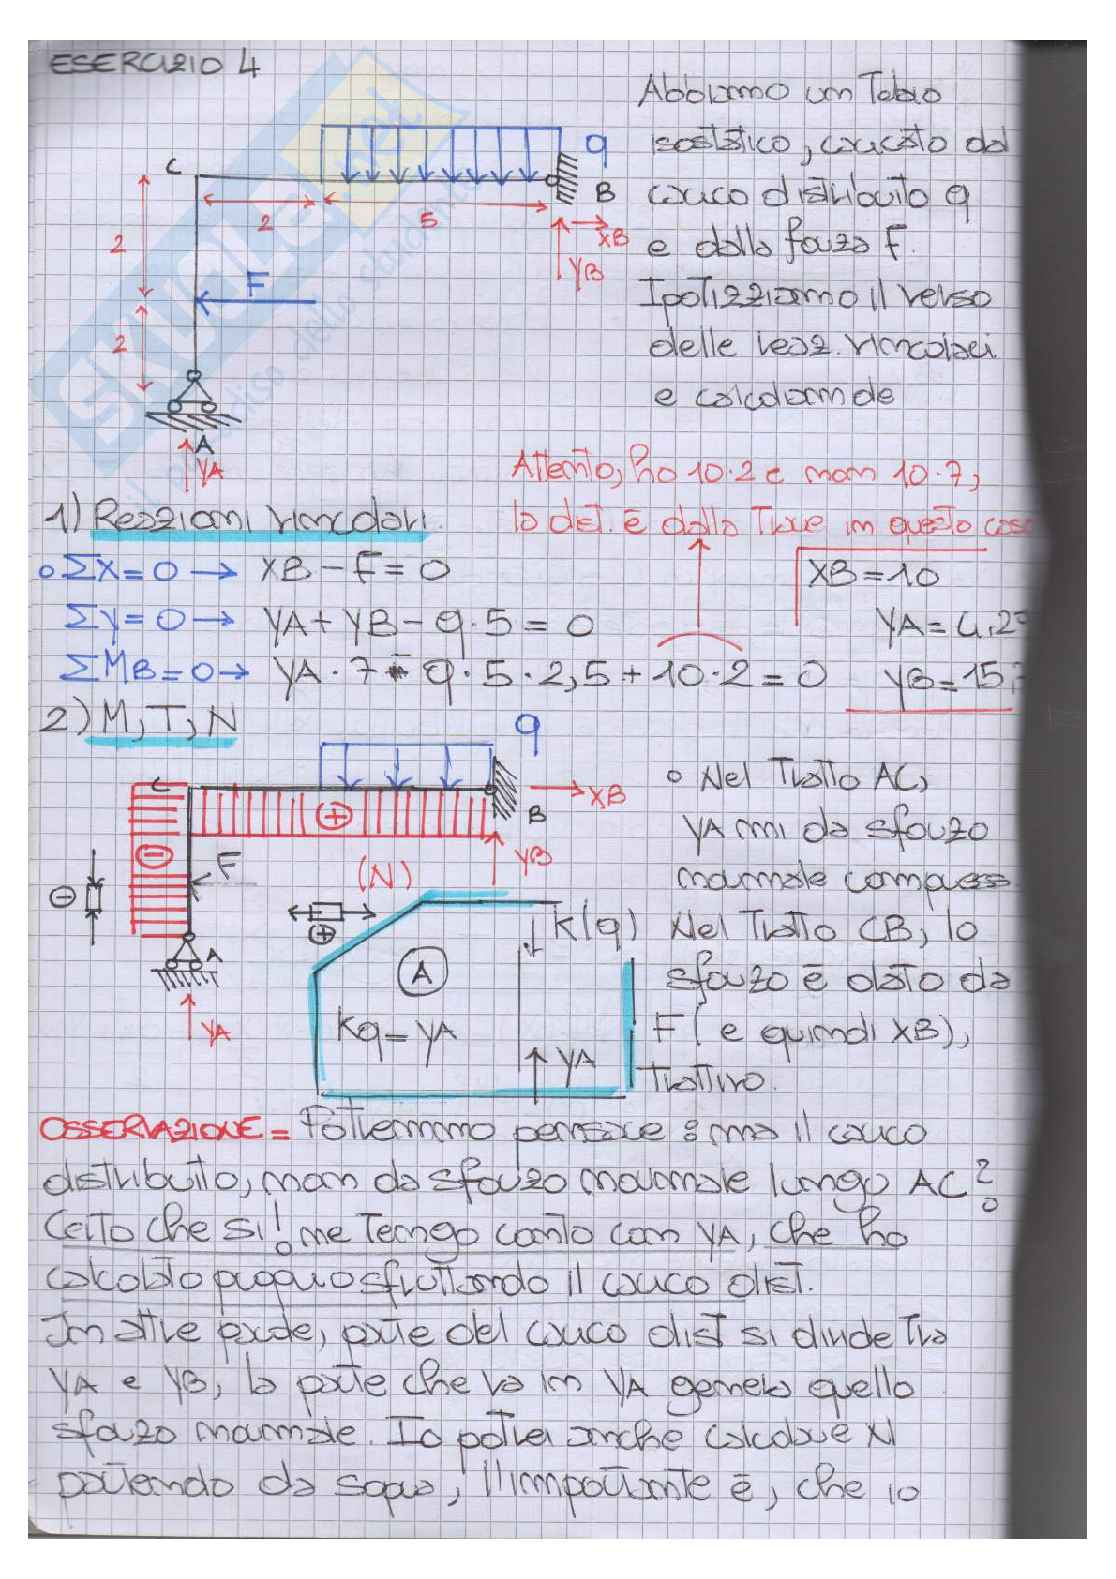 ESERCIZIO 4
Abbiamo un Telaio
isostatico, caricato dal
carico distribuito q
e dalla forza F.
Ipotizziamo il verso
delle reaz. vincolari
e calcoliamole
C
q
B
2
5
XB
YB
2
F
2
A
YA
Attento, ho 10·2 e non 10·7,
la dist. è dalla Trave in questo caso
1) Reazioni vincolari.
ΣX=0 → XB-F=0
XB=10
Σy=0 → YA+YB-q·5=0
ΣMB=0 → YA·7-q·5·2,5+10·2=0
2) M, T, N
q
C
⊕
B
XB
⊖
F
YB
(N)
⊖
⊕
A
YA
Nel Tratto AC,
YA mi da sforzo
normale compress
Nel Tratto CB, lo
sforzo è dato da
F (e quindi XB),
Trattivo.
k(q)
A
kq=YA
YA
OSSERVAZIONE = Potremmo pensare: ma il carico
distribuito, non da sforzo normale lungo AC?
Certo che si! ne Tengo conto con YA, che ho
calcolato proprio sfruttando il carico dist.
In altre parole, parte del carico dist si divide Tra
YA e YB, la parte che va in YA genera quello
sforzo normale. Io potrei anche calcolare N
partendo da sopra, l'importante è, che io